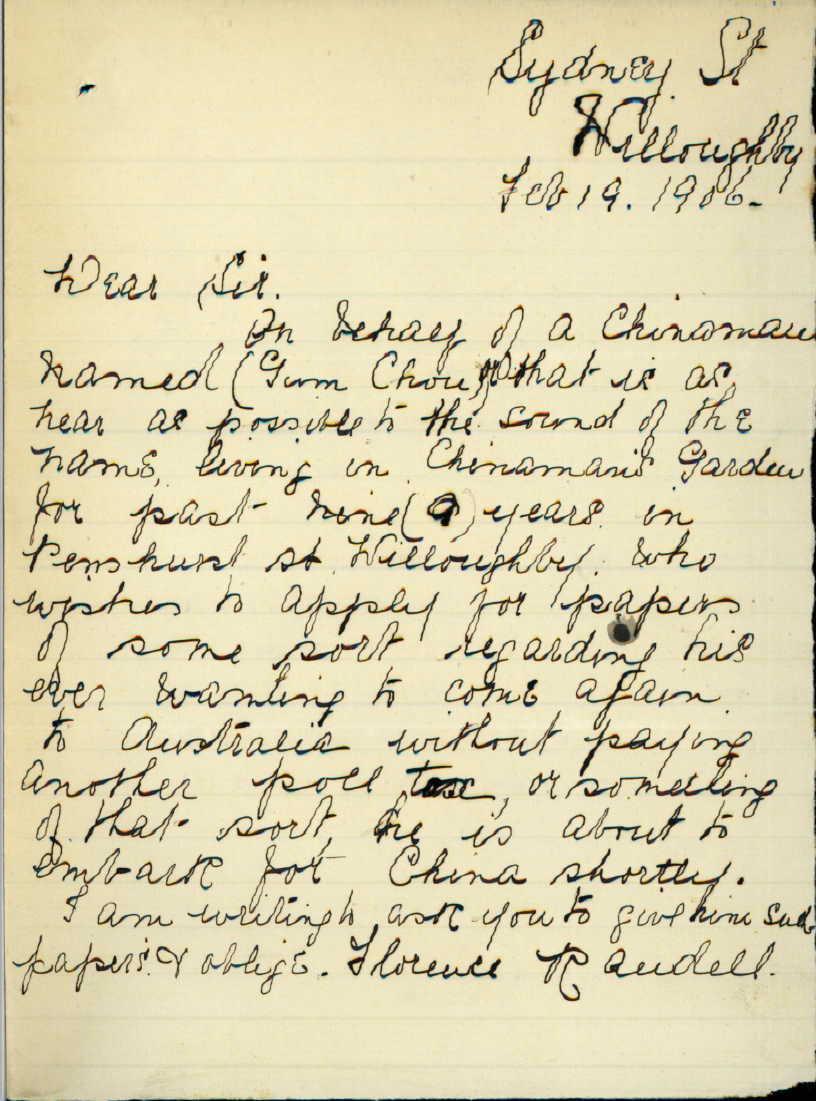 Sydney St
Willoughby
Feb 19. 1906.
Dear Sir.
On behalf of a Chinaman
named (Gum Chow) that is as
near as possible to the sound of the
name, living in Chinaman's Garden
for past nine (9) years in
Penshurst st. Willoughby. who
wishes to apply for papers
of some sort regarding his
ever wanting to come again
to Australia without paying
another poll tax, or something
of that sort, he is about to
embark for China shortly.
I am writing to ask you to give him such
papers. & oblige. Florence Raudell.